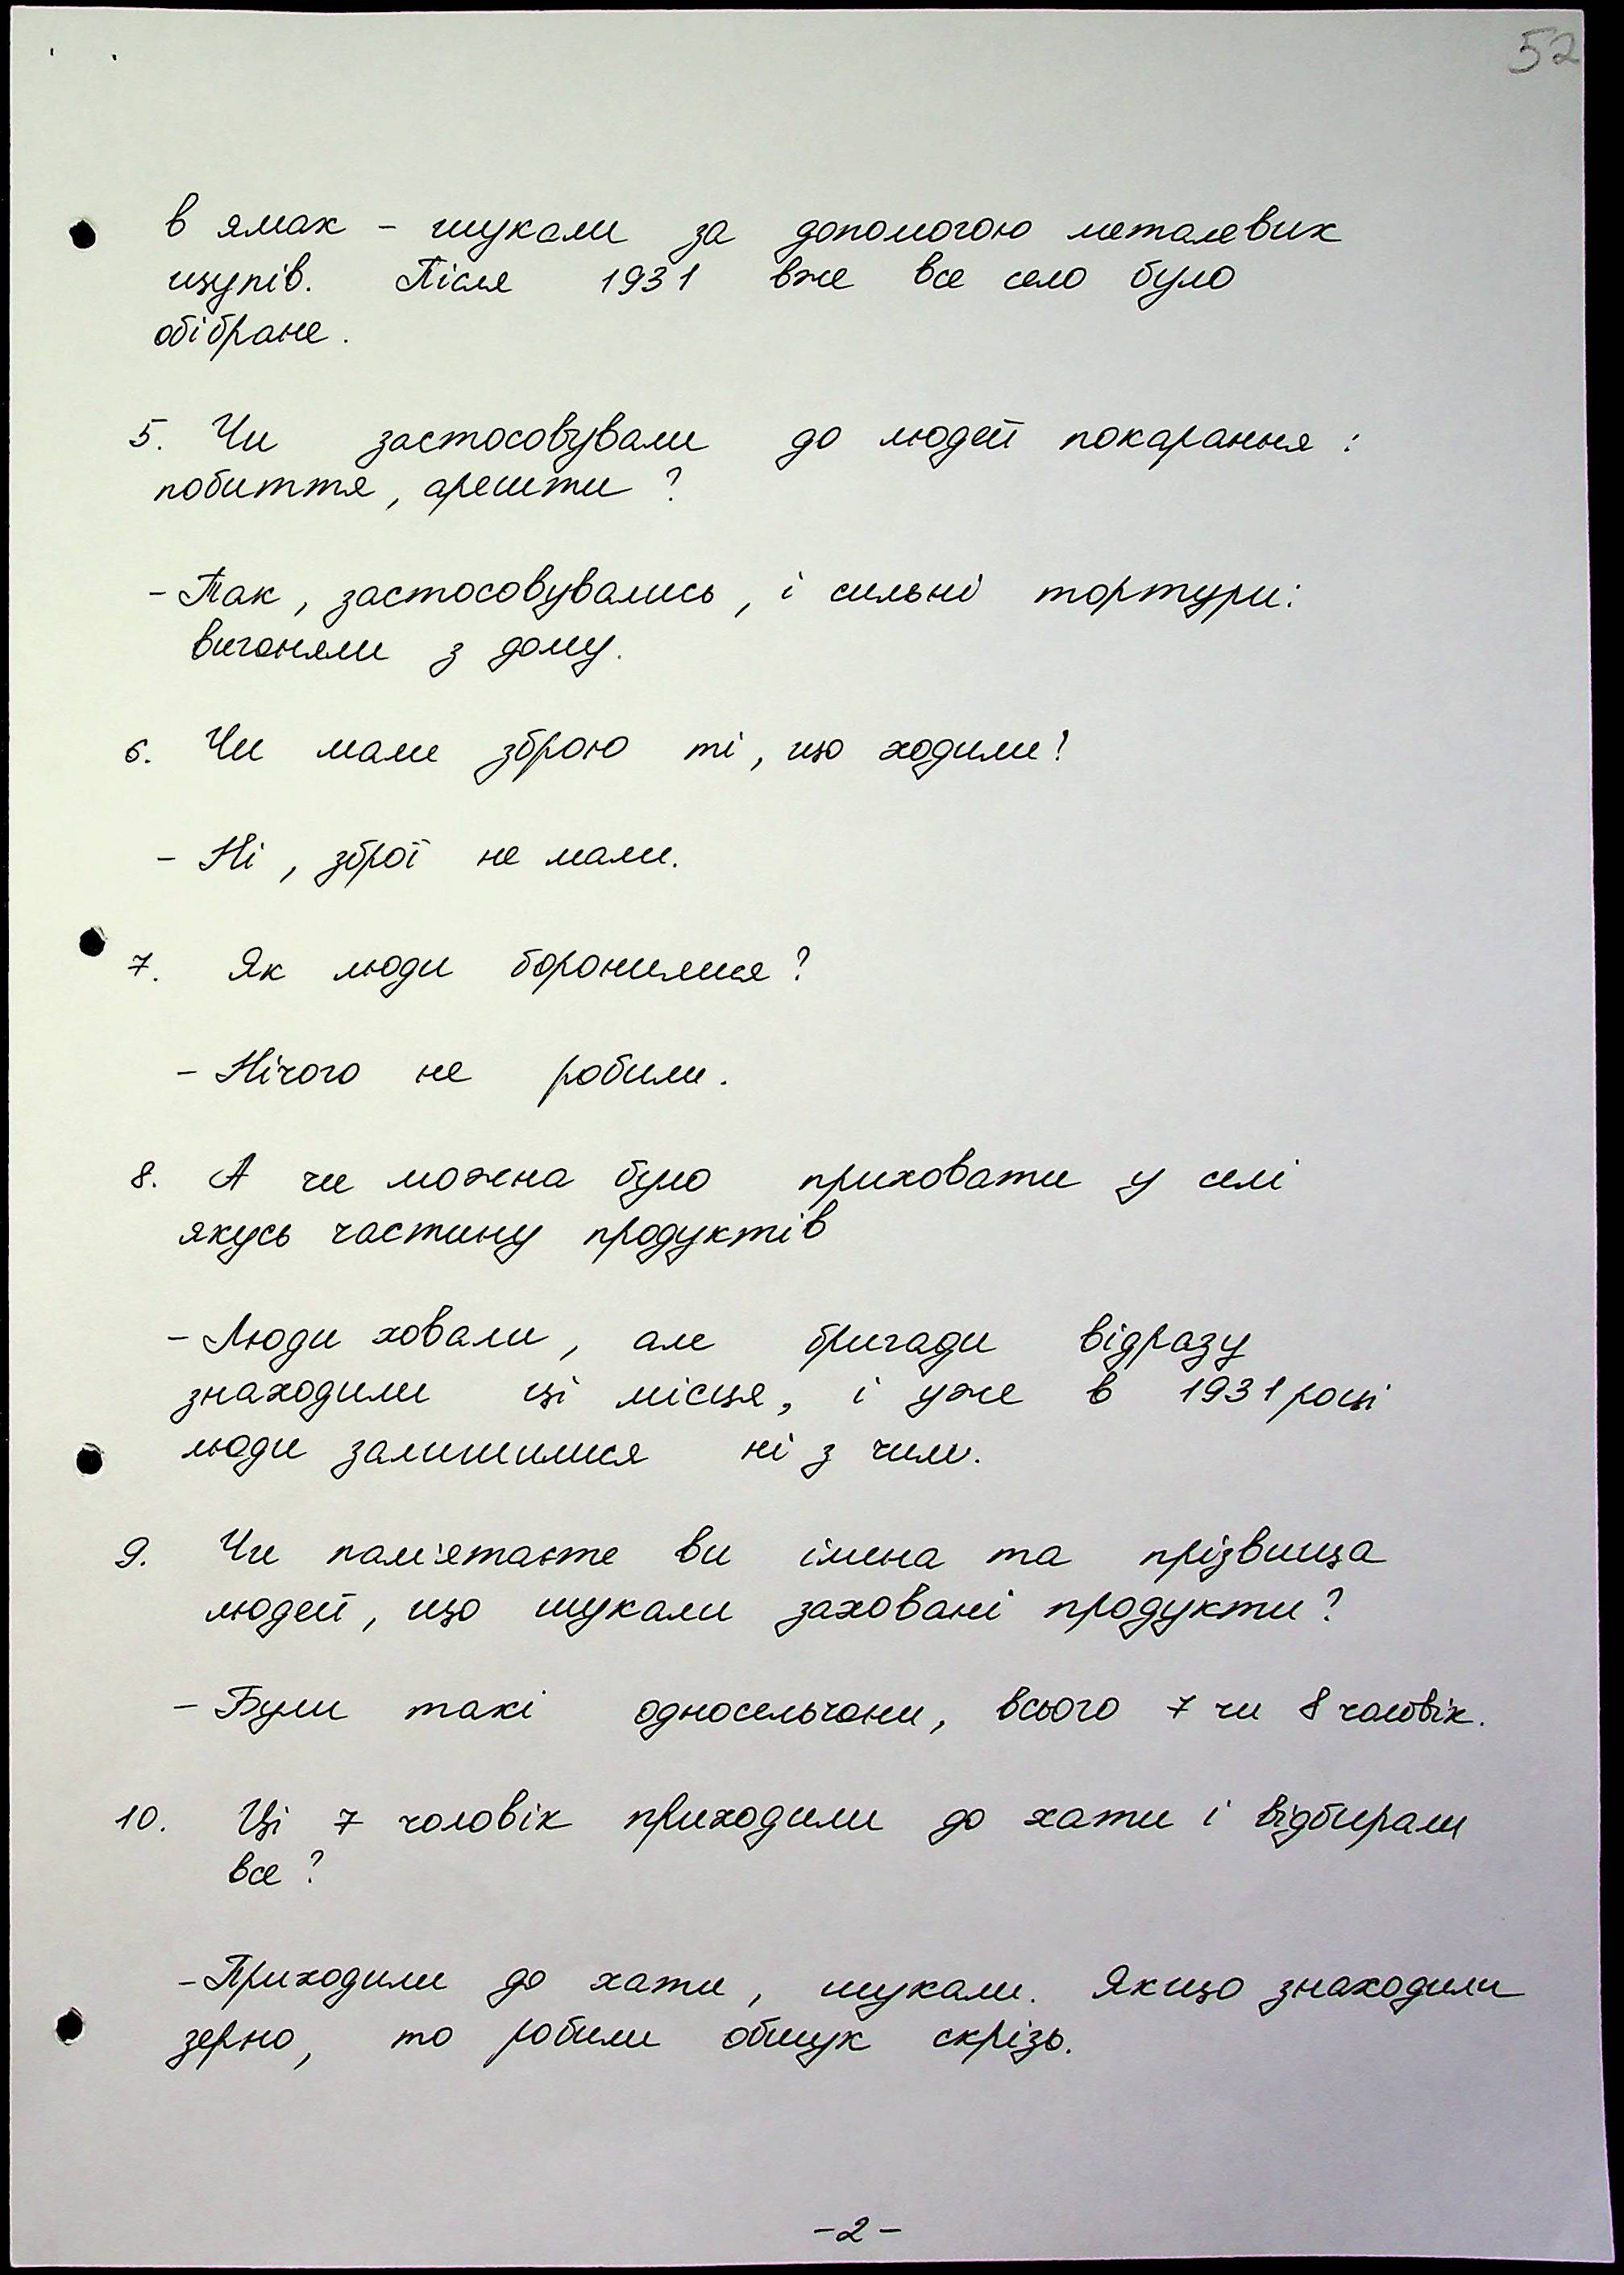 52
в ямах - шукали за допомогою металевих
щупів. Після 1931 вже все село було
обібране.
5. Чи застосовували до людей покарання:
побиття, арешти?
- Так, застосовувались, і сильні тортури:
виганяли з дому.
6. Чи мали зброю ті, що ходили?
- Ні, зброї не мали.
7. Як люди боронилися?
- Нічого не робили.
8. А чи можна було приховати у селі
якусь частину продуктів
- Люди ховали, але бригади відразу
знаходили ці місця, і уже в 1931 році
люди залишилися ні з чим.
9. Чи пам'ятаєте ви імена та прізвища
людей, що шукали заховані продукти?
- Були такі односельчани, всього 7 чи 8 чоловік.
10. Ці 7 чоловік приходили до хати і відбирали
все?
- Приходили до хати, шукали. Якщо знаходили
зерно, то робили обшук скрізь.
- 2 -